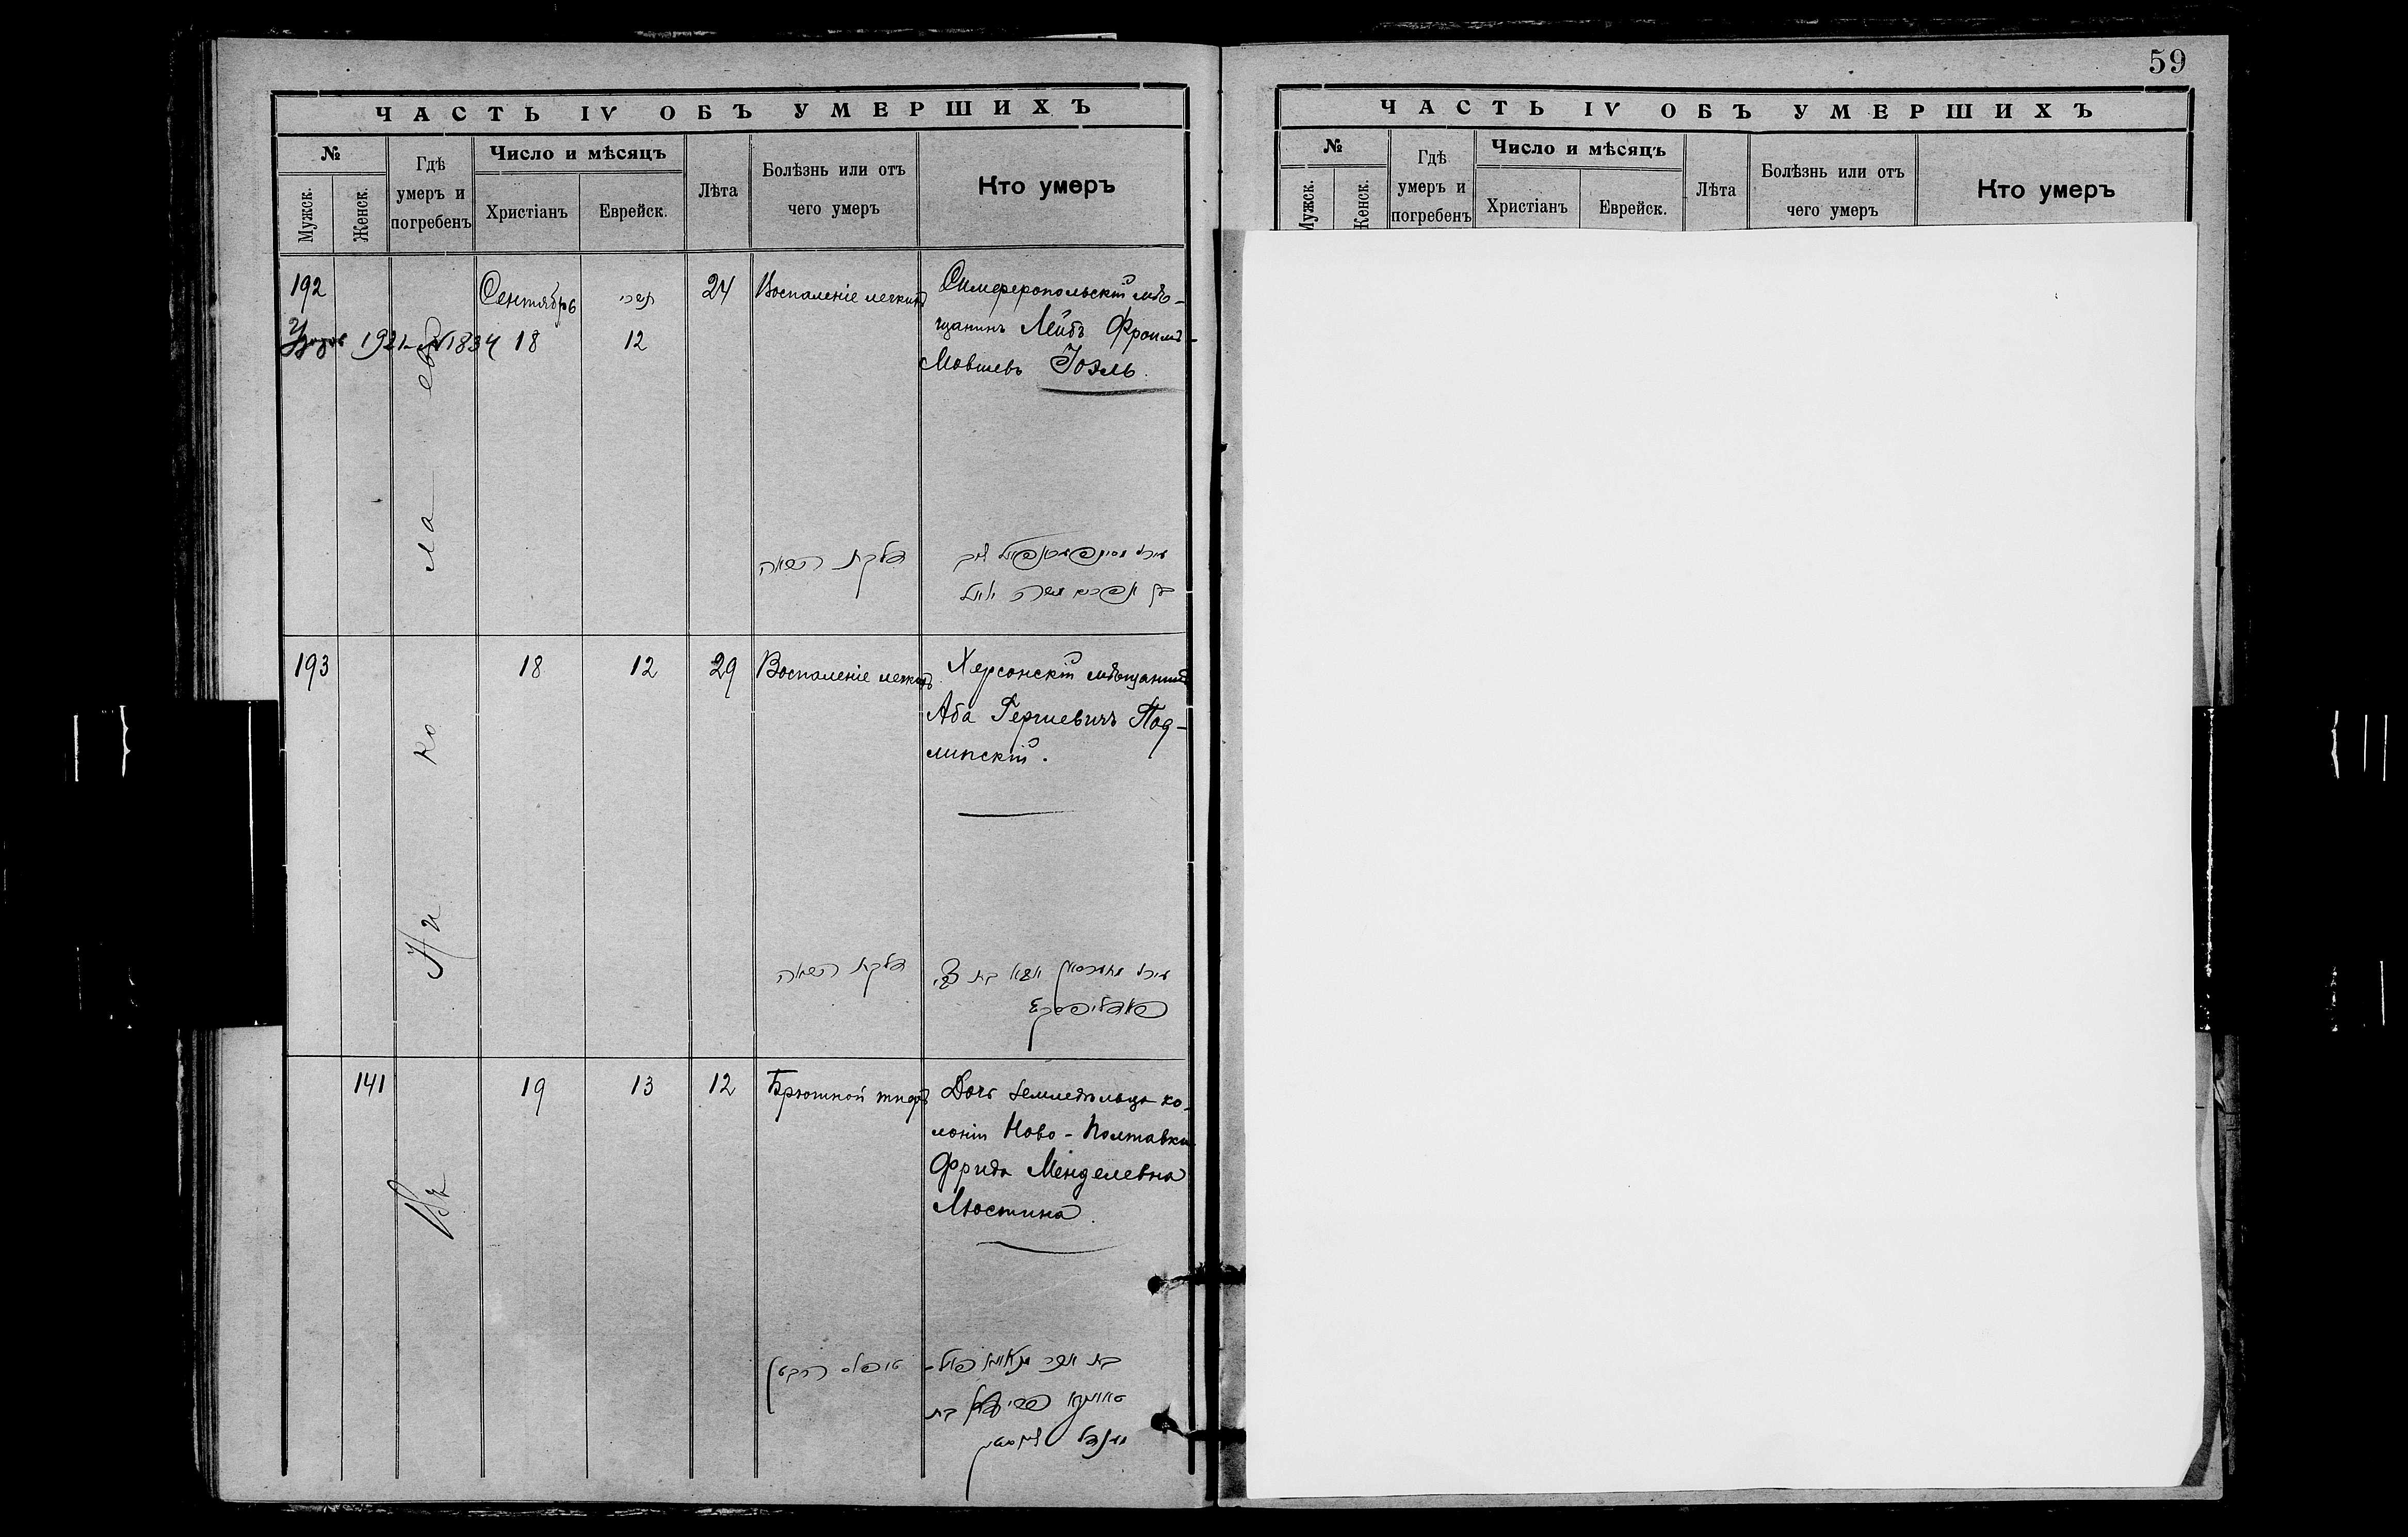 59
ЧАСТЬ IV ОБЪ УМЕРШИХЪ
№
Мужск.
Женск.
Гдѣ
умеръ и
погребенъ
Число и мѣсяцъ
Христіанъ
Еврейск.
Лѣта
Болѣзнь или отъ
чего умеръ
Кто умеръ
192
1921 № 1834
Сентябрь
18
תשרי
12
24
Воспаленіе легкихъ
Симферопольскій мѣ-
щанинъ Лейбъ Фроимъ-
Мовшевъ Іоэль.
דלקת הריאה
בן אפרים משה יואל
193
18
12
29
Воспаленіе легкихъ
Херсонскій мѣщанинъ
Аба Гершевичъ Под-
липскій.
דלקת הריאה
141
19
13
12
Брюшной тифъ
Дочь земледѣльца ко-
лоніи Ново-Полтавки
Фрида Менделевна
Люстина.
טיפוס הבטן
Въ Николаевѣ
ЧАСТЬ IV ОБЪ УМЕРШИХЪ
№
Мужск.
Женск.
Гдѣ
умеръ и
погребенъ
Число и мѣсяцъ
Христіанъ
Еврейск.
Лѣта
Болѣзнь или отъ
чего умеръ
Кто умеръ